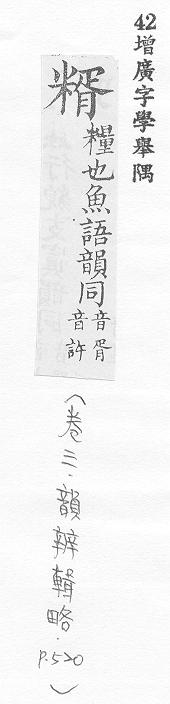 42增廣字學舉隅
糈 糧也魚語韻同音胥音許
(卷三.韻辨輯略.P.520)